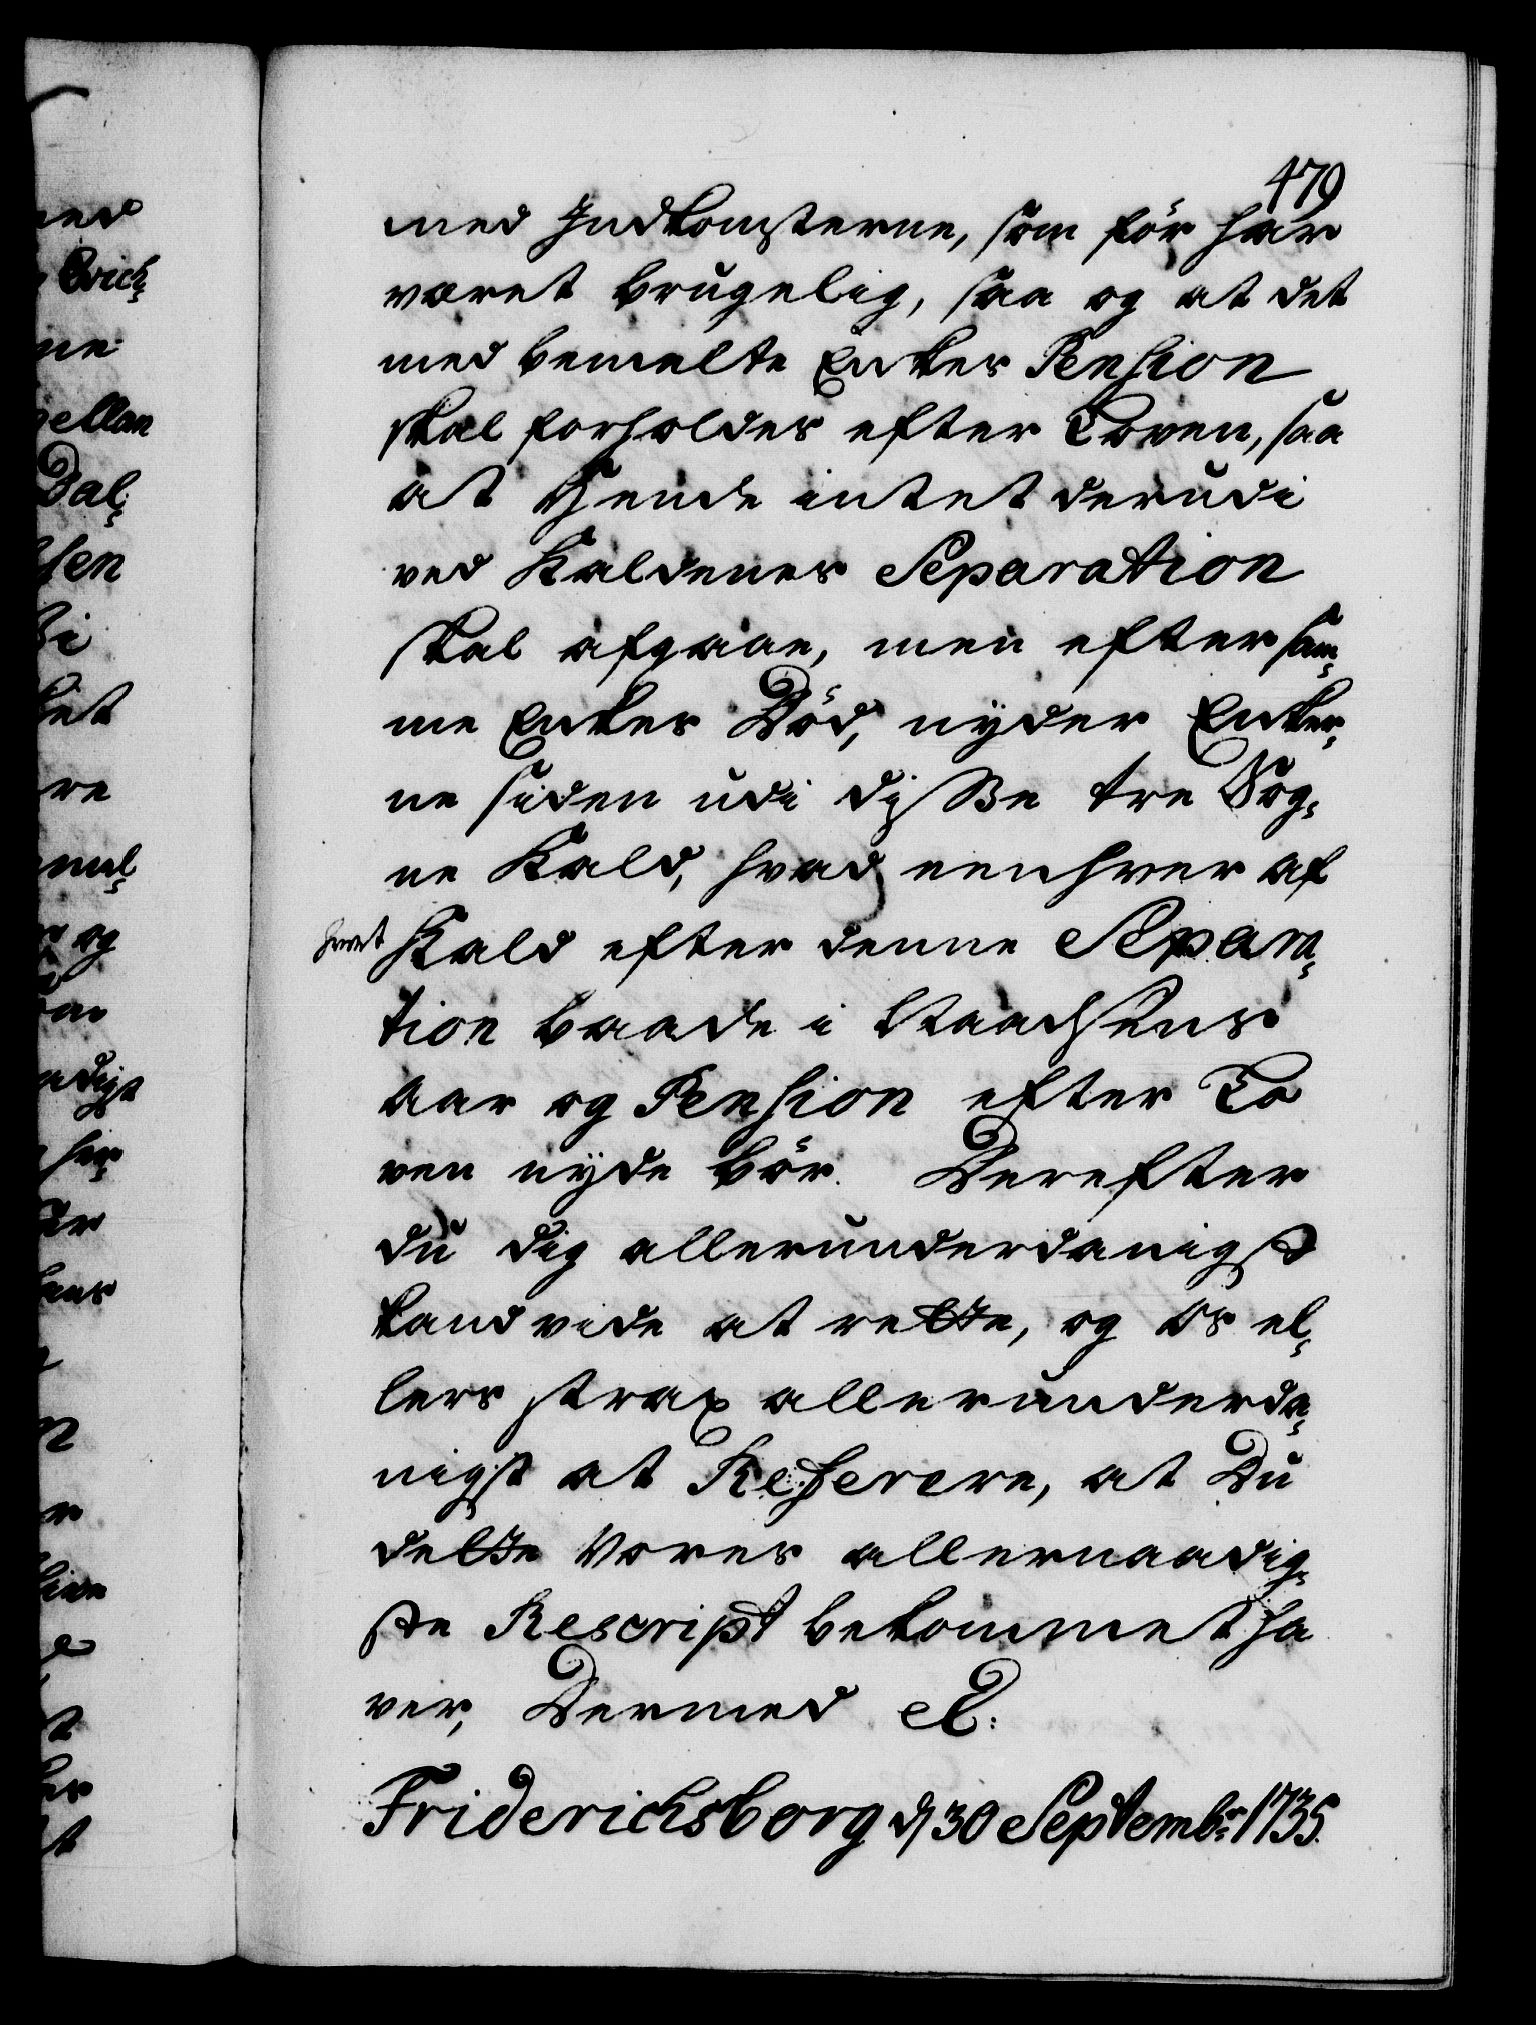 479
med Indkomsterne, som før har
været brugelig, saa og at det
med bemelte Enkes Pension
skal forholdes efter Loven, saa
at Hende intet derudi
ved Kaldenes Separation
skal afgaae, men efter sam¬
me Enkes Död, nyder Enker¬
ne siden udi disse tre Sog¬
ne Kald, hvad eenhver af
hvert Kald efter denne Separa¬
tion baade i Naadsens
aar og Pension efter Lo
ven nyde bör. Derefter
du dig allerunderdanigst
kand vide at rette, og Os el¬
lers strax allerunderda¬
nigst at Referere, at Du
dette Vores allernaadig¬
ste Rescript bekommet ha
ver, Dermed &:
Friderichsborg d 30 Septembr 1735.